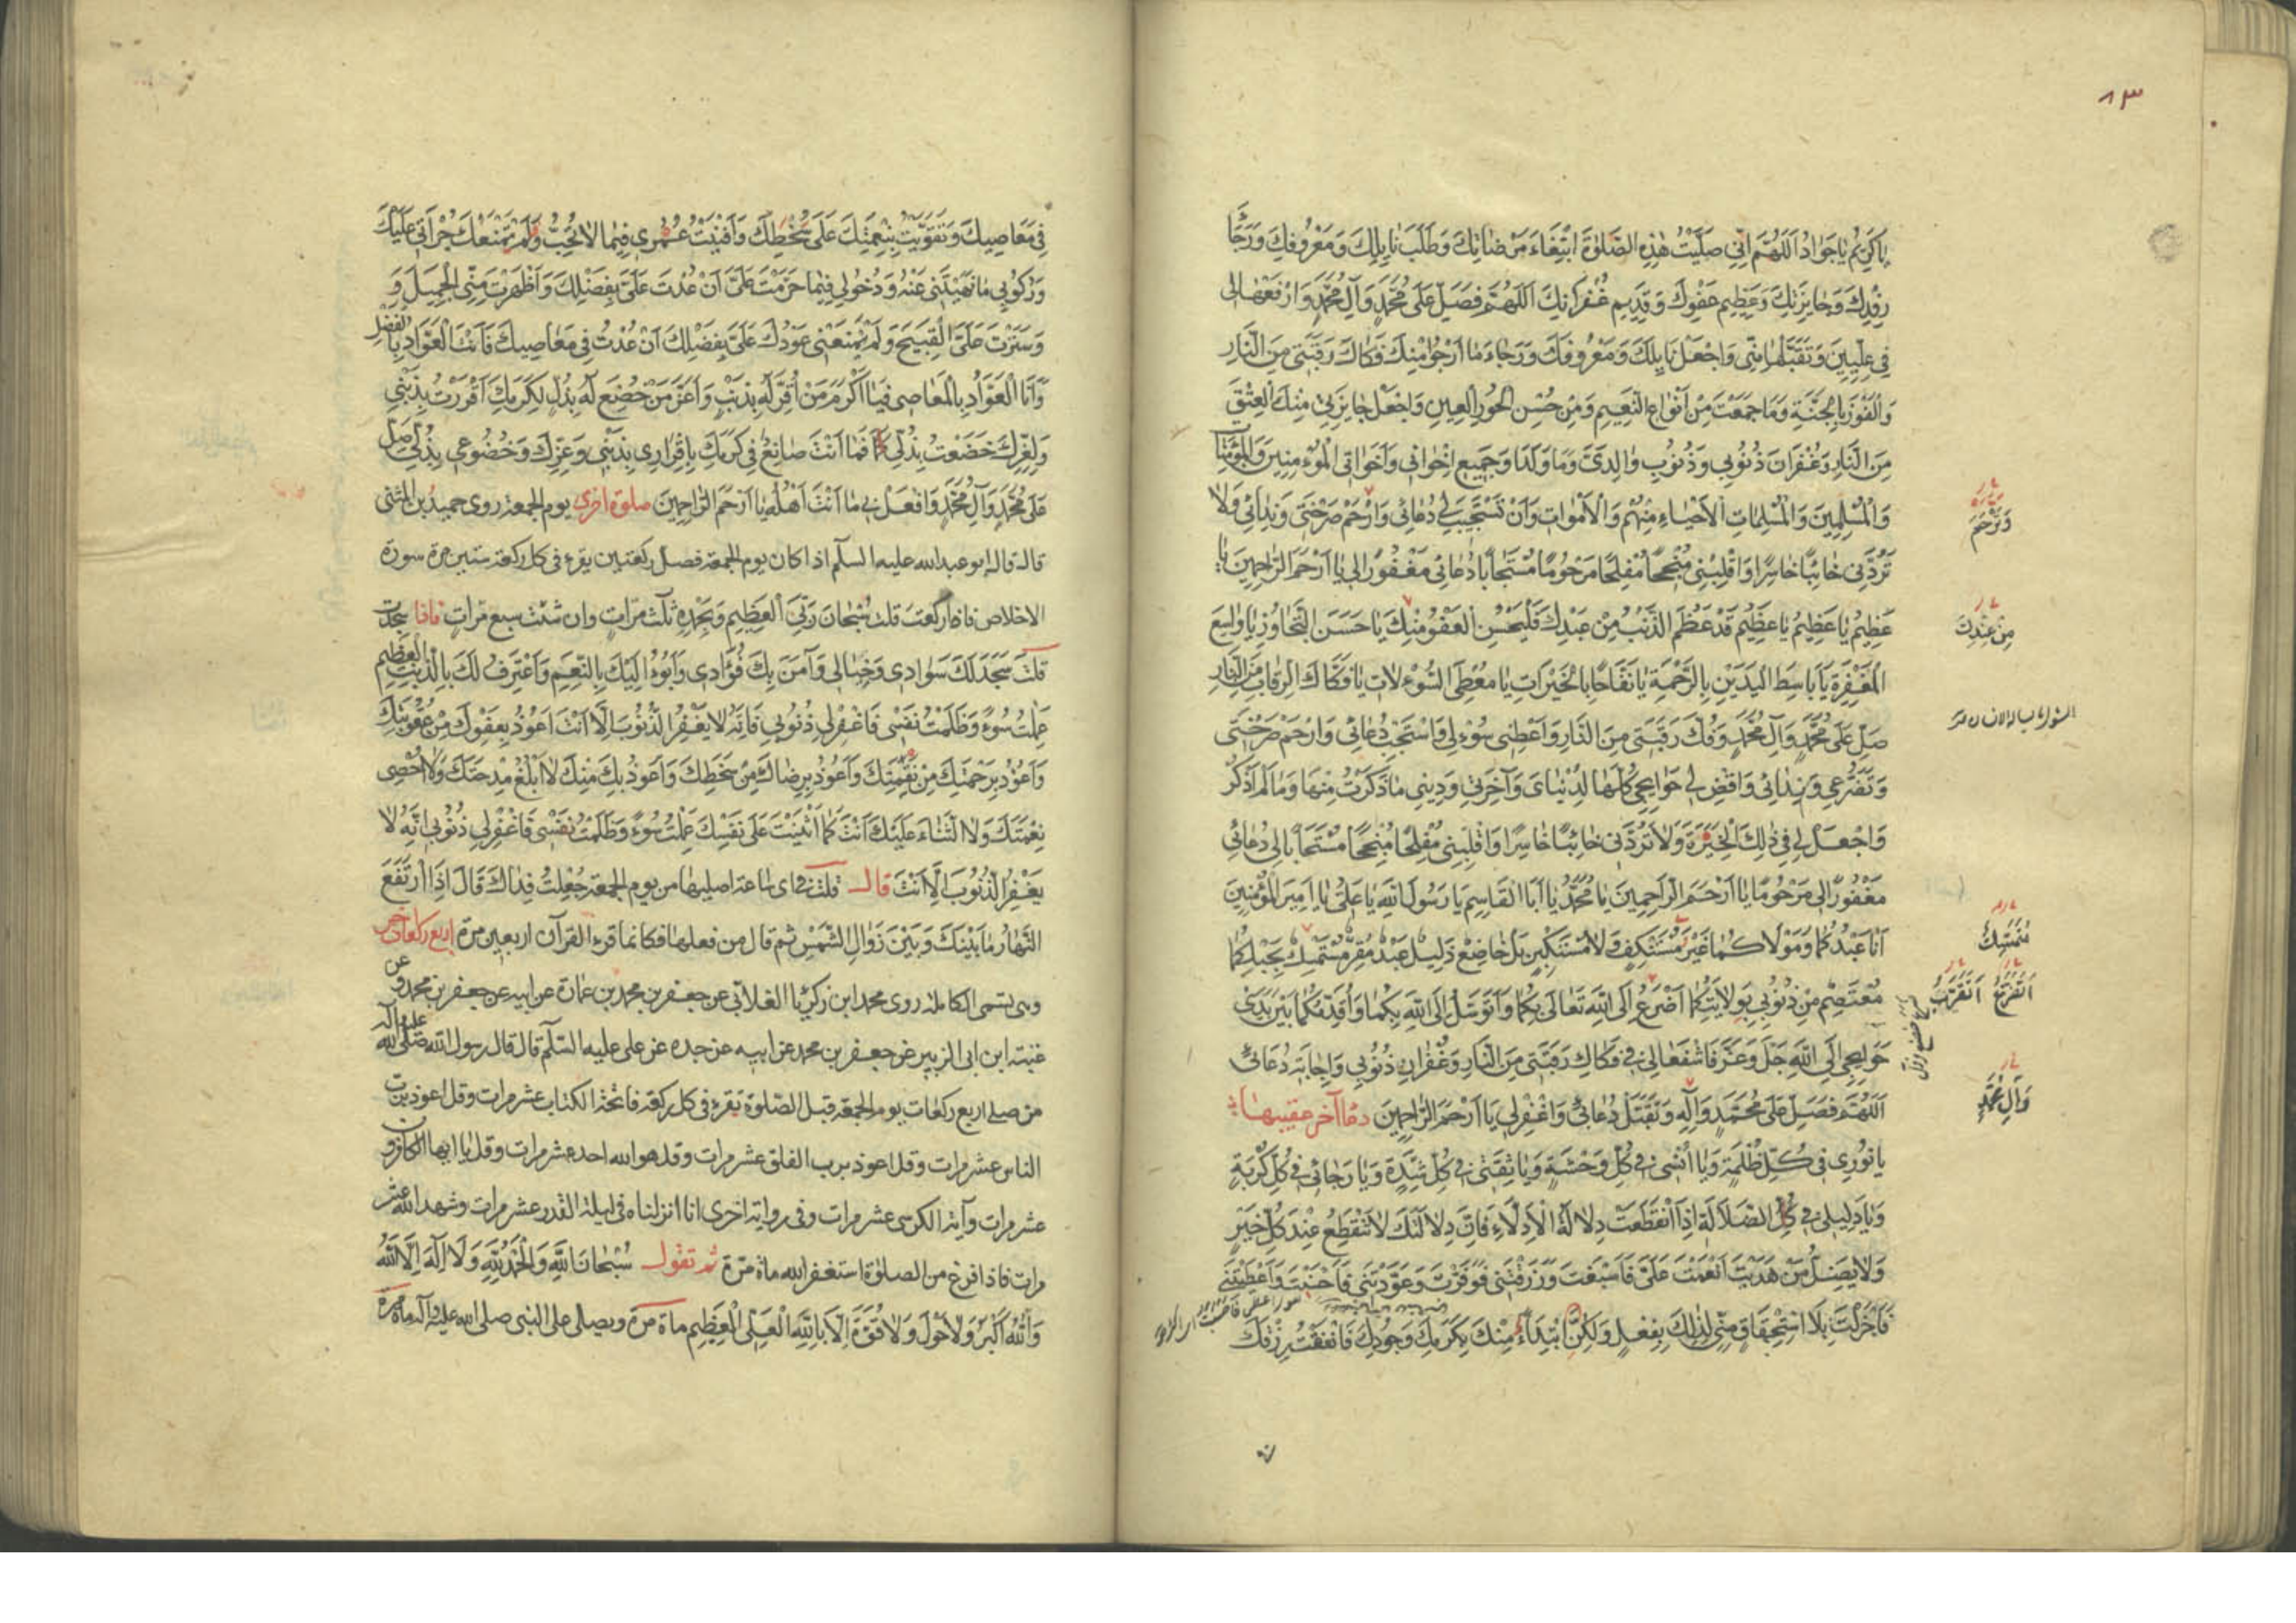 ٨٣
يَا كَرِيمُ يَا جَوَادُ اَللّٰهُمَّ اِنِّي صَلَّيْتُ هٰذِهِ الصَّلٰوةَ ابْتِغَاءَ مَرْضَاتِكَ وَطَلَبَ نَايِلِكَ وَمَعْرُوفِكَ وَرَجَاءَ
رِفْدِكَ وَجَايِزَتِكَ وَعَظِيمِ عَفْوِكَ وَقَدِيمِ غُفْرَانِكَ اَللّٰهُمَّ فَصَلِّ عَلَى مُحَمَّدٍ وَآلِ مُحَمَّدٍ وَارْفَعْهَا لِي
فِي عِلِّيِينَ وَتَقَبَّلْهَا مِنِّي وَاجْعَلْ نَايِلَكَ وَمَعْرُوفَكَ وَرَجَاءَ مَا اَرْجُوا مِنْكَ فَكَاكَ رَقَبَتِي مِنَ النَّارِ
وَالْفَوْزَ بِالْجَنَّةِ وَمَا جَمَعْتَ مِنْ اَنْوَاعِ النَّعِيمِ وَمِنْ حُسْنِ الْحُورِ الْعِينِ وَاجْعَلْ جَايِزَتِي مِنْكَ الْعِتْقَ
مِنَ النَّارِ وَغُفْرَانَ ذُنُوبِي وَذُنُوبِ وَالِدَيَّ وَمَا وَلَدَا وَجَمِيعِ اِخْوَانِي وَاَخَوَاتِي الْمُؤْمِنِينَ وَالْمُؤْمِنَاتِ
وَالْمُسْلِمِينَ وَالْمُسْلِمَاتِ الْاَحْيَاءِ مِنْهُمْ وَالْاَمْوَاتِ وَاَنْ تَسْتَجِيبَ لِي دُعَائِي وَارْحَمْ صَرْخَتِي وَنِدَائِي وَلَا
وَتَرْحَمَ
تَرُدَّنِي خَائِبًا خَاسِرًا وَاقْلِبْنِي مُنْجِحًا مُفْلِحًا مَرْحُومًا مُسْتَجَابًا دُعَائِي مَغْفُورًا لِي يَا اَرْحَمَ الرَّاحِمِينَ يَا
عَظِيمُ يَا عَظِيمُ يَا عَظِيمُ قَدْ عَظُمَ الذَّنْبُ مِنْ عَبْدِكَ فَلْيَحْسُنِ الْعَفْوُ مِنْكَ يَا حَسَنَ التَّجَاوُزِ يَا وَاسِعَ
مِنْ عِنْدِكَ
الْمَغْفِرَةِ يَا بَاسِطَ الْيَدَيْنِ بِالرَّحْمَةِ يَا نَفَّاحًا بِالْخَيْرَاتِ يَا مُعْطِيَ السُّوءْلَاتِ يَا فَكَّاكَ الرِّقَابِ مِنَ النَّارِ
صَلِّ عَلَى مُحَمَّدٍ وَآلِ مُحَمَّدٍ وَفُكَّ رَقَبَتِي مِنَ النَّارِ وَاَعْطِنِي سُوءْلِي وَاسْتَجِبْ دُعَائِي وَارْحَمْ صَرْخَتِي
وَتَضَرُّعِي وَنِدَائِي وَاقْضِ لِي حَوَايِجِي كُلَّهَا لِدُنْيَايَ وَآخِرَتِي وَدِينِي مَا ذَكَرْتُ مِنْهَا وَمَا لَمْ اَذْكُرْ
وَاجْعَلْ لِي فِي ذٰلِكَ الْخِيَرَةَ وَلَا تَرُدَّنِي خَائِبًا خَاسِرًا وَاقْلِبْنِي مُفْلِحًا مُنْجِحًا مُسْتَجَابًا لِي دُعَائِي
مَغْفُورًا لِي مَرْحُومًا يَا اَرْحَمَ الرَّاحِمِينَ يَا مُحَمَّدُ يَا اَبَا الْقَاسِمِ يَا رَسُولَ اللّٰهِ يَا عَلِيُّ يَا اَمِيرَ الْمُؤْمِنِينَ
اَنَا عَبْدُكُمَا وَمَوْلَاكُمَا غَيْرَ مُسْتَنْكِفٍ وَلَا مُسْتَكْبِرٍ بَلْ خَاضِعٌ ذَلِيلٌ عَبْدٌ مُقِرٌّ مُتَمَسِّكٌ بِحَبْلِكُمَا
مُتَمَسِّكٌ
مُعْتَصِمٌ مِنْ ذُنُوبِي بِوِلَايَتِكُمَا اَضْرَعُ اِلَى اللّٰهِ تَعَالَى بِكُمَا وَاَتَوَسَّلُ اِلَى اللّٰهِ بِكُمَا وَاُقَدِّمُكُمَا بَيْنَ يَدَيْ
اَتَضَرَّعُ اَتَقَرَّبُ
حَوَايِجِي اِلَى اللّٰهِ جَلَّ وَعَزَّ فَاشْفَعَا لِي فِي فَكَاكِ رَقَبَتِي مِنَ النَّارِ وَغُفْرَانِ ذُنُوبِي وَاِجَابَةِ دُعَائِي
اَللّٰهُمَّ فَصَلِّ عَلَى مُحَمَّدٍ وَآلِهِ وَتَقَبَّلْ دُعَائِي وَاغْفِرْ لِي يَا اَرْحَمَ الرَّاحِمِينَ دعا آخر عقيبها
وَآلِ مُحَمَّدٍ
يَا نُورِي فِي كُلِّ ظُلْمَةٍ وَيَا اُنْسِي فِي كُلِّ وَحْشَةٍ وَيَا ثِقَتِي فِي كُلِّ شِدَّةٍ وَيَا رَجَائِي فِي كُلِّ كُرْبَةٍ
وَيَا دَلِيلِي فِي كُلِّ الضَّلَالَةِ اِذَا انْقَطَعَتْ دِلَالَةُ الْاَدِلَّاءِ فَاِنَّ دِلَالَتَكَ لَا تَنْقَطِعُ عِنْدَ كُلِّ خَيْرٍ
وَلَا يَضِلُّ مَنْ هَدَيْتَ اَنْعَمْتَ عَلَيَّ فَاَسْبَغْتَ وَرَزَقْتَنِي فَوَفَّرْتَ وَعَوَّدْتَنِي فَاَحْسَنْتَ وَاَعْطَيْتَنِي
فَاَجْزَلْتَ بِلَا اسْتِحْقَاقٍ مِنِّي لِذٰلِكَ بِفِعْلٍ وَلٰكِنِ ابْتِدَاءً مِنْكَ بِكَرَمِكَ وَجُودِكَ فَاَنْفَقْتُ رِزْقَكَ
فِي مَعَاصِيكَ وَتَقَوَّيْتُ بِنِعْمَتِكَ عَلَى سُخْطِكَ وَاَفْنَيْتُ عُمْرِي فِيمَا لَا تُحِبُّ وَلَمْ تَمْنَعْكَ جُرْاَتِي عَلَيْكَ
وَرُكُوبِي مَا نَهَيْتَنِي عَنْهُ وَدُخُولِي فِيمَا حَرَّمْتَ عَلَيَّ اَنْ عُدْتَ عَلَيَّ بِفَضْلِكَ وَاَظْهَرْتَ مِنِّي الْجَمِيلَ وَ
وَسَتَرْتَ عَلَيَّ الْقَبِيحَ وَلَمْ يَمْنَعْنِي عَوْدُكَ عَلَيَّ بِفَضْلِكَ اَنْ عُدْتُ فِي مَعَاصِيكَ فَاَنْتَ الْعَوَّادُ بِالْفَضْلِ
وَاَنَا الْعَوَّادُ بِالْمَعَاصِي فَيَا اَكْرَمَ مَنْ اُقِرَّ لَهُ بِذَنْبٍ وَاَعَزَّ مَنْ خُضِعَ لَهُ بِذُلٍّ لِكَرَمِكَ اَقْرَرْتُ بِذَنْبِي
وَلِعِزِّكَ خَضَعْتُ بِذُلِّي فَمَا اَنْتَ صَانِعٌ فِي كَرَمِكَ بِاِقْرَارِي بِذَنْبِي وَعِزِّكَ وَخُضُوعِي بِذُلِّي صَلِّ
عَلَى مُحَمَّدٍ وَآلِ مُحَمَّدٍ وَافْعَلْ بِي مَا اَنْتَ اَهْلُهُ يَا اَرْحَمَ الرَّاحِمِينَ صلوة اخرى يوم الجمعة روى حميد بن المثنى
قال قال ابو عبدالله عليه السلم اذا كان يوم الجمعة فصل ركعتين يقرء في كل ركعة ستين مرة سورة
الاخلاص فاذا ركعت قلت سُبْحَانَ رَبِّيَ الْعَظِيمِ وَبِحَمْدِهِ ثلث مرّاتٍ وان شئت سبع مرّاتٍ فاذا سجدت
قلت سَجَدَ لَكَ سَوَادِي وَخِيَالِي وَآمَنَ بِكَ فُؤَادِي وَاَبُوءُ اِلَيْكَ بِالنِّعَمِ وَاَعْتَرِفُ لَكَ بِالذَّنْبِ الْعَظِيمِ
عَمِلْتُ سُوءً وَظَلَمْتُ نَفْسِي فَاغْفِرْ لِي ذُنُوبِي فَاِنَّهُ لَا يَغْفِرُ الذُّنُوبَ اِلَّا اَنْتَ اَعُوذُ بِعَفْوِكَ مِنْ عُقُوبَتِكَ
وَاَعُوذُ بِرَحْمَتِكَ مِنْ نِقْمَتِكَ وَاَعُوذُ بِرِضَاكَ مِنْ سَخَطِكَ وَاَعُوذُ بِكَ مِنْكَ لَا اَبْلُغُ مِدْحَتَكَ وَلَا اُحْصِي
نِعْمَتَكَ وَلَا الثَّنَاءَ عَلَيْكَ اَنْتَ كَمَا اَثْنَيْتَ عَلَى نَفْسِكَ عَمِلْتُ سُوءً وَظَلَمْتُ نَفْسِي فَاغْفِرْ لِي ذُنُوبِي اِنَّهُ لَا
يَغْفِرُ الذُّنُوبَ اِلَّا اَنْتَ قال قلت في اى ساعة اصليها من يوم الجمعة جُعِلْتُ فِدَاكَ قَالَ اِذَا ارْتَفَعَ
النَّهَارُ مَا بَيْنَكَ وَبَيْنَ زَوَالِ الشَّمْسِ ثم قال من فعلها فكانما قرء القرآن اربعين مرة اربع ركعات اخر
وهى تسمى الكاملة روى محمد ابن زكريا الغلابى عن جعفر بن محمد بن عمارة عن ابيه عن جعفر بن محمد وعن
عتبة ابن ابى الزبير عن جعفر بن محمد عن ابيه عن جده عن على عليه السلم قال قال رسول الله صلى الله عليه وآله
من صلى اربع ركعات يوم الجمعة قبل الصلوة يقرء فى كل ركعة فاتحة الكتاب عشر مرات وقل اعوذ برب
الناس عشر مرات وقل اعوذ برب الفلق عشر مرات وقل هو الله احد عشر مرات وقل يا ايها الكافرون
عشر مرات وآية الكرسى عشر مرات وفى رواية اخرى انا انزلناه فى ليلة القدر عشر مرات وشهد الله عشر
مرات فاذا فرغ من الصلوة استغفر الله مائة مرّة ثم تقول سُبْحَانَ اللّٰهِ وَالْحَمْدُ لِلّٰهِ وَلَا اِلٰهَ اِلَّا اللّٰهُ
وَاللّٰهُ اَكْبَرُ وَلَا حَوْلَ وَلَا قُوَّةَ اِلَّا بِاللّٰهِ الْعَلِيِّ الْعَظِيمِ مائة مرّة ويصلى على النبى صلى الله عليه وآله مائة مرّة